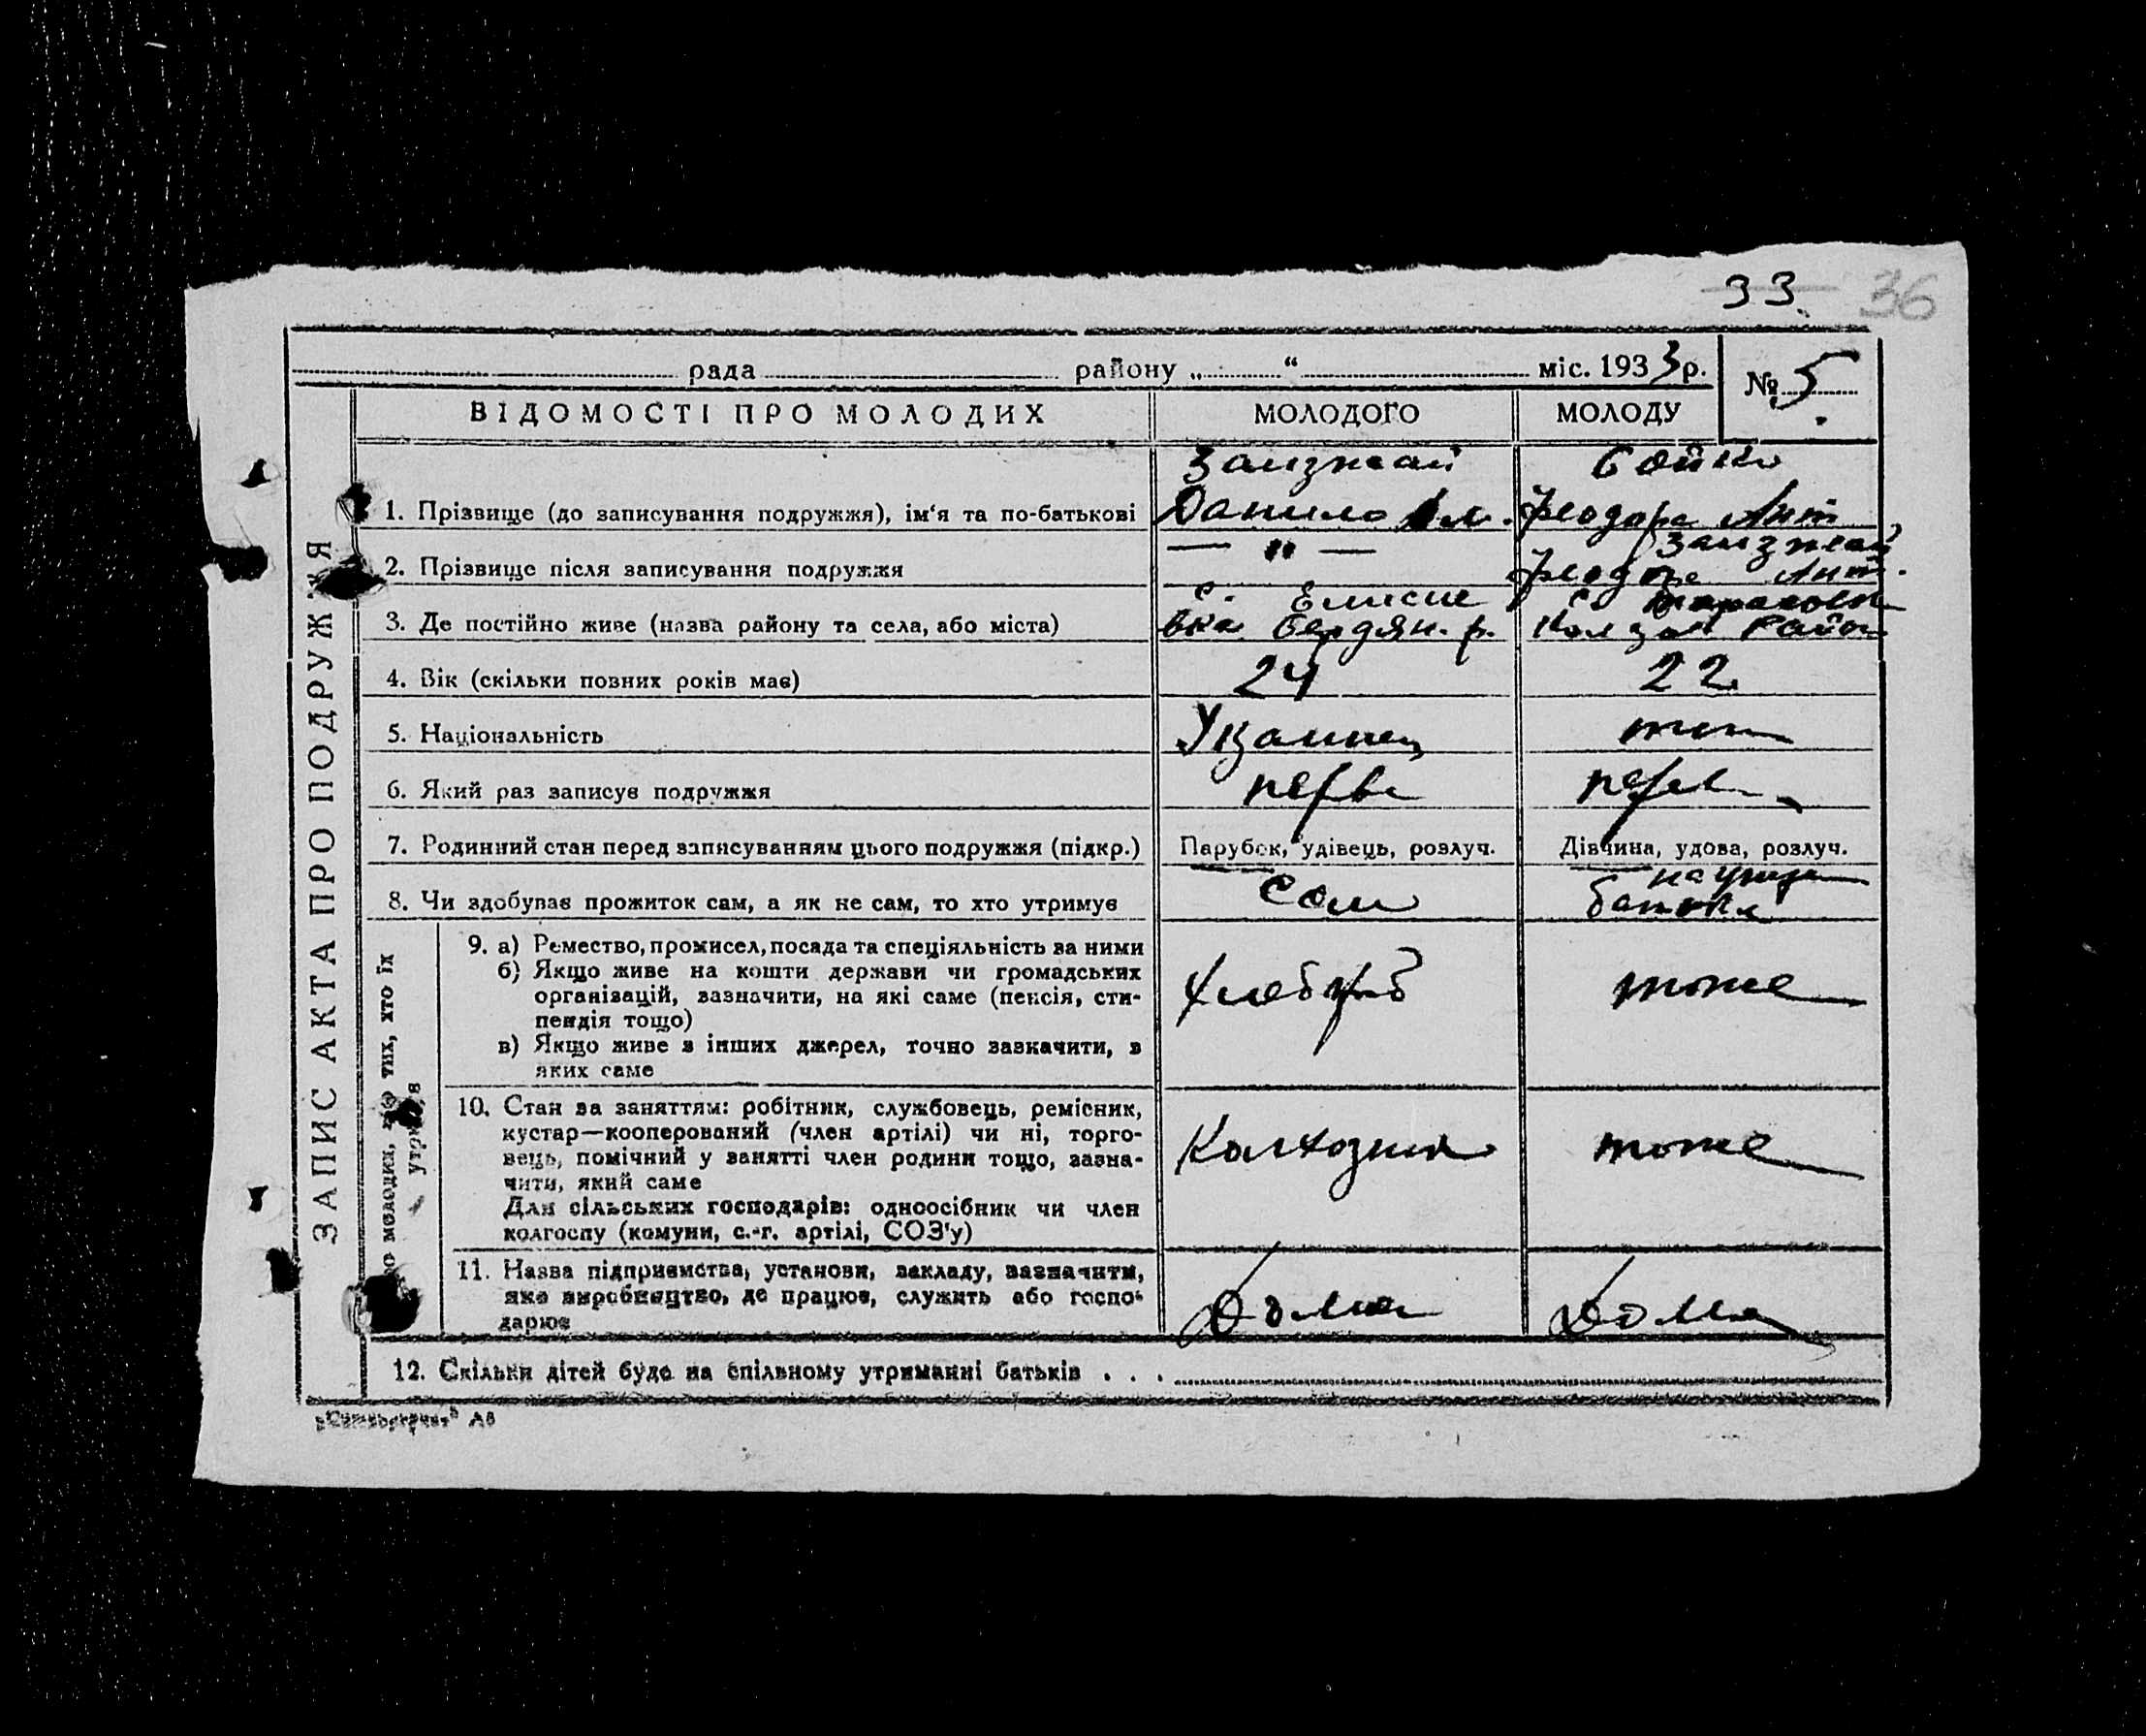 33. 36
рада району „ “ міс. 1933 р. № 5
ВІДОМОСТІ ПРО МОЛОДИХ МОЛОДОГО МОЛОДУ
ЗАПИС АКТА ПРО ПОДРУЖЖЯ
Заизжай
1. Прізвище (до записування подружжя), ім‘я та по-батькові Данило Феодора Ант
Заизжай
2. Прізвище після записування подружжя — " — Феодора Ант.
с. Елисе с.
3. Де постійно живе (назва району та села, або міста) вка Бердян. р. Район
4. Вік (скільки повних років має) 24 22
5. Національність
6. Який раз записує подружжя перве
7. Родинний стан перед записуванням цього подружжя (підкр.) Парубок, удівець, розлуч. Дівчина, удова, розлуч.
8. Чи здобував прожиток сам, а як не сам, то хто утримує сам
тих, хто їх
9. а) Ремество, промисел, посада та спеціяльність за ними
б) Якщо живе на кошти держави чи громадських
організацій, зазначити, на які саме (пенсія, сти-
пендія тощо)
в) Якщо живе з інших джерел, точно зазначити, з
яких саме
тоже
10. Стан за заняттям: робітник, службовець, ремісник,
кустар—кооперований (член артілі) чи ні, торго-
вець, помічний у занятті член родини тощо, зазна-
чити, який саме
Для сільських господарів: одноосібник чи член
колгоспу (комуни, с.-г. артілі, СОЗ'у)
Колхозник тоже
11. Назва підприємства, установи, закладу, зазначити,
яке виробництво, де працює, служить або госпо-
дарює
Дома Дома
12. Скільки дітей буде на спільному утриманні батьків . . .